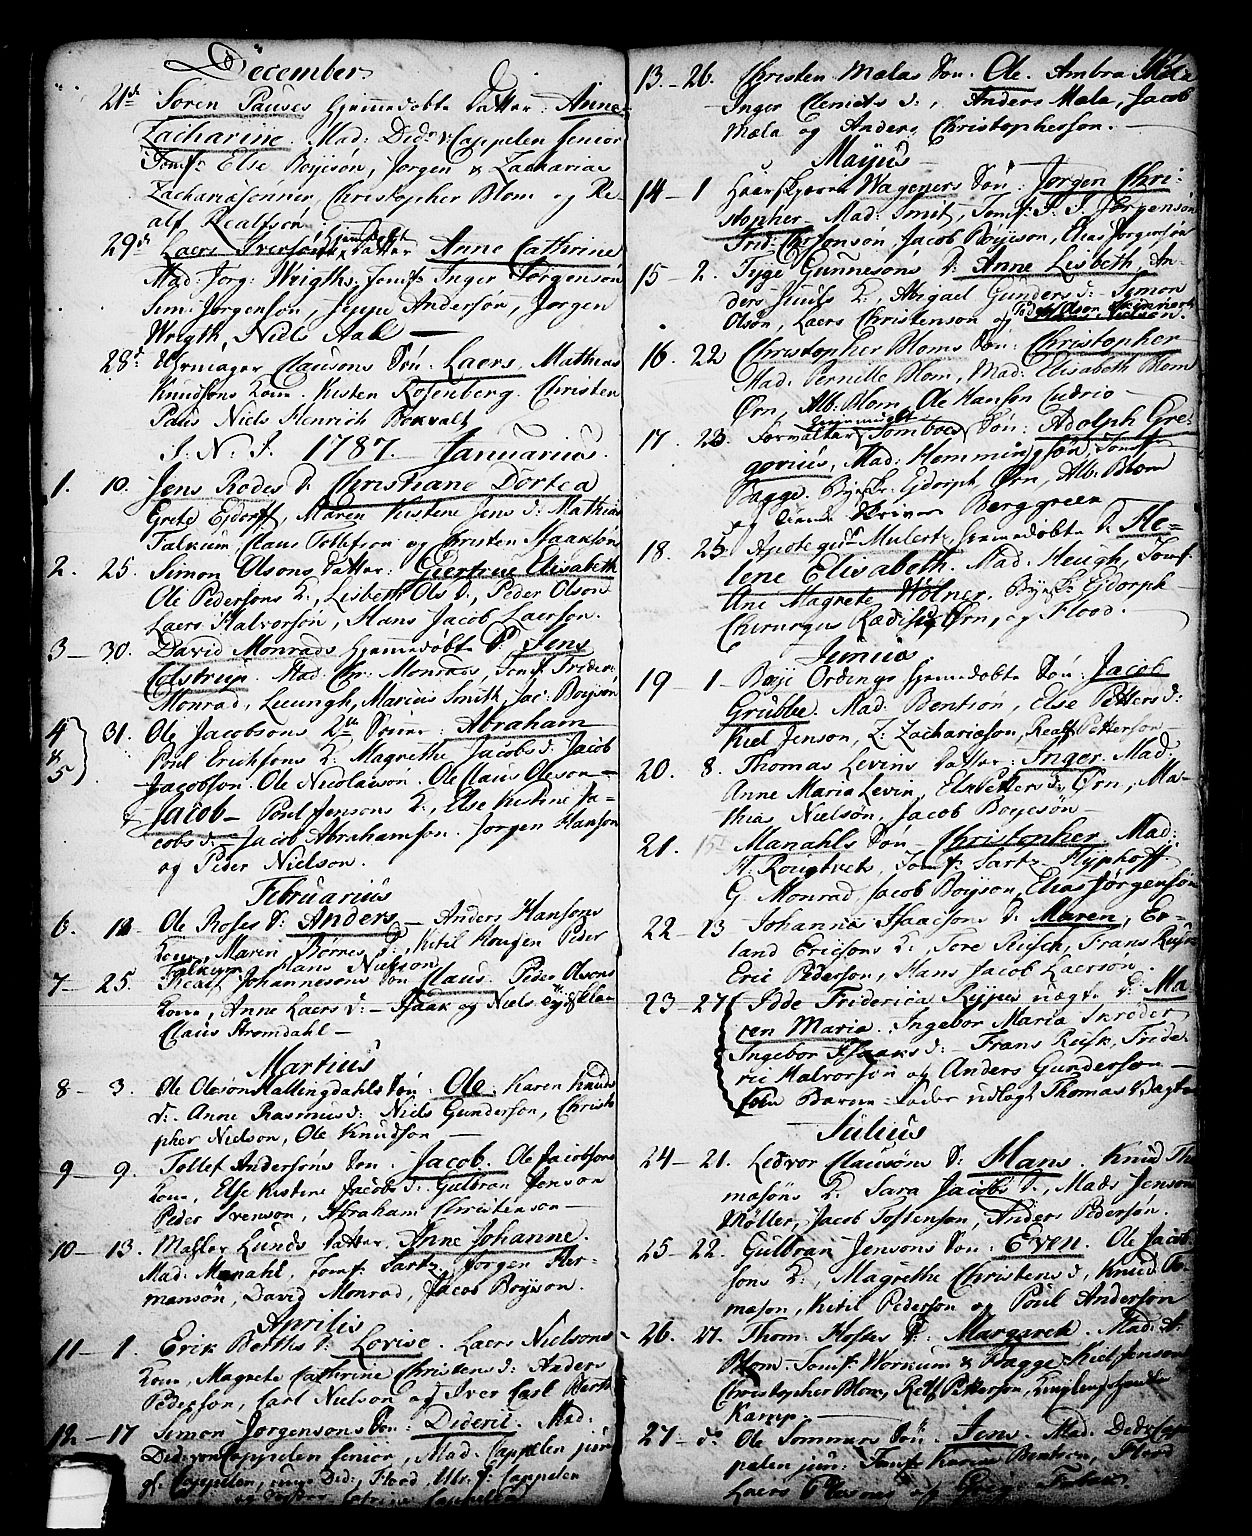 December
21de Søren Pauses hjemmedøbte Datter: Anne
Zacharine. Mad: Didr v Cappelen senior
Jomfr Else Boyeson, Jørgen & Zacharias
Zachariasønner, Christopher Blom og Re-
alf Realfsøn
29de Laers Iversøns hjemdøbt Datter Anne Cathrine
Mad: Jørg: Wrigths, Jomfr Inger Jørgensøn
Sim: Jørgensøn, Jeppe Andersøn, Jørgen
Wrigth, Niels Aal
28de Clausøns Søn: Laers. Mathias
Knudsøns Kone. Kisten Rosenberg. Christen
Paus Niels Henrich
I. N. J. 1787. Januarius.
1. 10. Jens Rodes D. Christiane Dortea
Grete Ejdorff, Maren Kistene Jens d: Mathias
Falkum, Claus Tollefson og Christen Isaaksøn
2. 25. Simon Olsons Datter: Giertrue Elisabeth
Ole Pedersøns K., Lisbeth Ols D., Peder Olsøn
Laers Halvorsøn, Hans Jacob Laerson.
3 — 30. David Monrads hjemmedøbte S. Jens
Colstrup. Mad. Chr: Monrads, Jomf. Frider:
Monrad, Lieungh, Marcus Smith, Jac: Boyson
4 & 5 31. Ole Jacobsons 2de Sønner: Abraham
Poul Erichsøns K: Magrethe Jacobs d: Jacob
Jacobson. Ole Nicolaison Ole Claus Oleson
& Jacob — Poul Jensons K., Else Kistine Ja-
cobs d: Jacob Abrahamson. Jørgen Hanson
og Peder Nielson.
Februarius
6. Ole Roses S: Anders — Anders Hansøns
Kone, Maren Børnes D, Kitil Knusen Peder
Falkum Hans Nielson
7 — 25. Realf Johannesøns Søn Claus. Peder Olsøns
Kone, Anne Laers d: — Isaak og Niels
Claus Strømdahl —
Martius
8 — 3. Ole Olesøn Hallingdahls Søn: Ole. Karen Knuds
d: Anne Rasmus d: Niels Gunderson, Christo
pher Nielson, Ole Knudson —
9 — 9. Tollef Andersøns Søn: Jacob. Ole Jacobsøns
Kone, Else Kistine Jacobs d: Gulbran Jenson
Peder Svenson, Abraham Christenson —
10 — 13. Mahler Lunds Datter Anne Johanne.
Mad: Monahl, Jomf. Sartz, Jørgen Her-
mansøn, David Monrad, Jacob Boyson.
Aprilis
11 — 1. Erik Berths D: Lovise. Laers Nielsons
Kone, Magrete Cathrine Christens d: Anders
Pederson, Carl Nielson og Iver Carl Berth
12 — 17 Simon Jørgensons Søn: Diderik. Mad:
Did: von Cappelen senior, Mad. Cappelen jun
Cappelen, unge Did:, Flod, Cappelen
Cappelen
13 — 26. Christen Mælas Søn: Ole. Ambra Mæla
Inger Clemets d:, Anders Mæla, Jacob
Mæla og Anders Christopherson.
Majus
14 — 1 Haarskjærer Wageners Søn: Jørgen Chri-
stopher Mad: Smit, Jomf: Jørgenson
Frid: Chr Jonson, Jacob Boyeson, Elias Jørgenson
15 — 2. Tyge Gunnesøns D: Anne Lisbeth, An-
ders Juuls K., Abigael Gunders d: Simon
Olsøn, Laers Christenson og
16. 22 Christopher Bloms Søn: Christopher
Mad: Pernille Blom, Mad: Elisabeth Blom
Ørn, Alb: Blom, Ole Hansen Cudrio
17. 23. Forvalter Tomboes Søn: Adolph Gre-
gorius, Mad: Hemmingsøn, Jomf
Bagge. Ejdorph, Ørn, Alb: Blom
og Skriver Berggreen
18. 25. Apotequer Mulerts hjemmedøbte D. He-
lene Elisabeth. Mad: Heugh, Jomf.
Ane Magrete Wölner, Ejdorph
Chirurgus Ørn, og Flood.
Junius
19 — 1 — Boje Ordings hjemmedøbte Søn: Jacob
Grubbe. Mad: Bention, Else Petters d:
Kiel Jenson, Z: Zachariæson, Realf Petterson
20. 8. Thomas Levins Datter: Inger. Mad:
Anne Maria Levin, Els Petters d: Ørn, Ma-
thias Nielson, Jacob Boyeson —
21. 15de Manahls Søn Christopher Mad:
H: Rougtvet, Jomf: Sartz Hyphoff
G. Monrad, Jacob Boyson, Elias Jørgenson
22 — 13 — Johannes Isaacsons D: Maren, Er-
land Ericsons K: Tore Rusch, Frans Rusch
Eric Pederson, Hans Jacob Laersøn.
23 — 27 Idde Friderica Rypes uægte D: Ma
ren Maria. Ingebor Maria Skrøder
Ingebor Isaaks d: — Frans Rusk, Fride-
ric Halvorson og Anders Gunderson —
Barne-Fader udlagt Thomas
Julius
24 — 21. Ledvor Clausøns S: Hans. Knud Tho
masøns K: Sara Jacobs D., Mads Jenson
Møller, Jacob Tostenson, Anders Pedersøn.
25 — 22. Gulbran Jensons Søn: Even. Ole Jacob
sons K:, Magrethe Christens d, Knud To-
mason, Kitil Pederson og Poul Anderson
26. 27. Thom: Hofses D: Margareth. Mad: A
Blom. Jomf: Workum & Bagge Kiel Jenson
Christopher Blom, Relf Petterson,
Kamp —
27 — do Ole Sommers Søn: Jens. Mad. Did: v Cap
pelen jun: Jomfr Karen Bentson, Flood
Laers